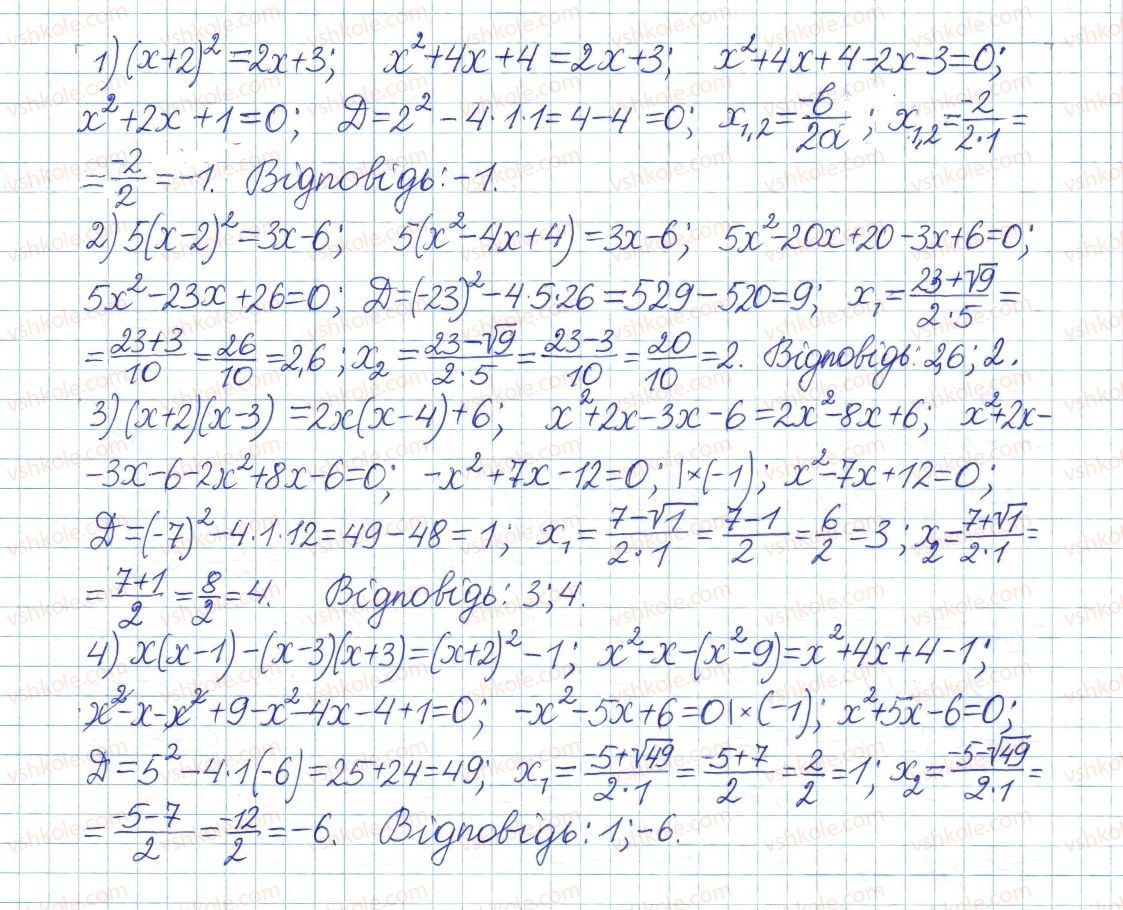 1) (x+2)² = 2x+3; x²+4x+4 = 2x+3; x²+4x+4-2x-3=0;
x²+2x+1=0; Д=2²-4·1·1=4-4=0; x₁,₂ = -b/2a; x₁,₂ = -2/2·1 =
= -2/2 = -1. Відповідь: -1.
2) 5(x-2)² = 3x-6; 5(x²-4x+4) = 3x-6; 5x²-20x+20-3x+6=0;
5x²-23x+26=0; Д=(-23)²-4·5·26=529-520=9; x₁ = 23+√9/2·5 =
= 23+3/10 = 26/10 = 2,6; x₂ = 23-√9/2·5 = 23-3/10 = 20/10 = 2. Відповідь: 2,6; 2.
3) (x+2)(x-3) = 2x(x-4)+6; x²+2x-3x-6 = 2x²-8x+6; x²+2x-
-3x-6-2x²+8x-6=0; -x²+7x-12=0; |×(-1); x²-7x+12=0;
Д=(-7)²-4·1·12=49-48=1; x₁ = 7-√1/2·1 = 7-1/2 = 6/2 = 3; x₂ = 7+√1/2·1 =
= 7+1/2 = 8/2 = 4. Відповідь: 3; 4.
4) x(x-1)-(x-3)(x+3)=(x+2)²-1; x²-x-(x²-9)=x²+4x+4-1;
x²-x-x²+9-x²-4x-4+1=0; -x²-5x+6=0|×(-1); x²+5x-6=0;
Д=5²-4·1(-6)=25+24=49; x₁ = -5+√49/2·1 = -5+7/2 = 2/2 = 1; x₂ = -5-√49/2·1 =
= -5-7/2 = -12/2 = -6. Відповідь: 1; -6.